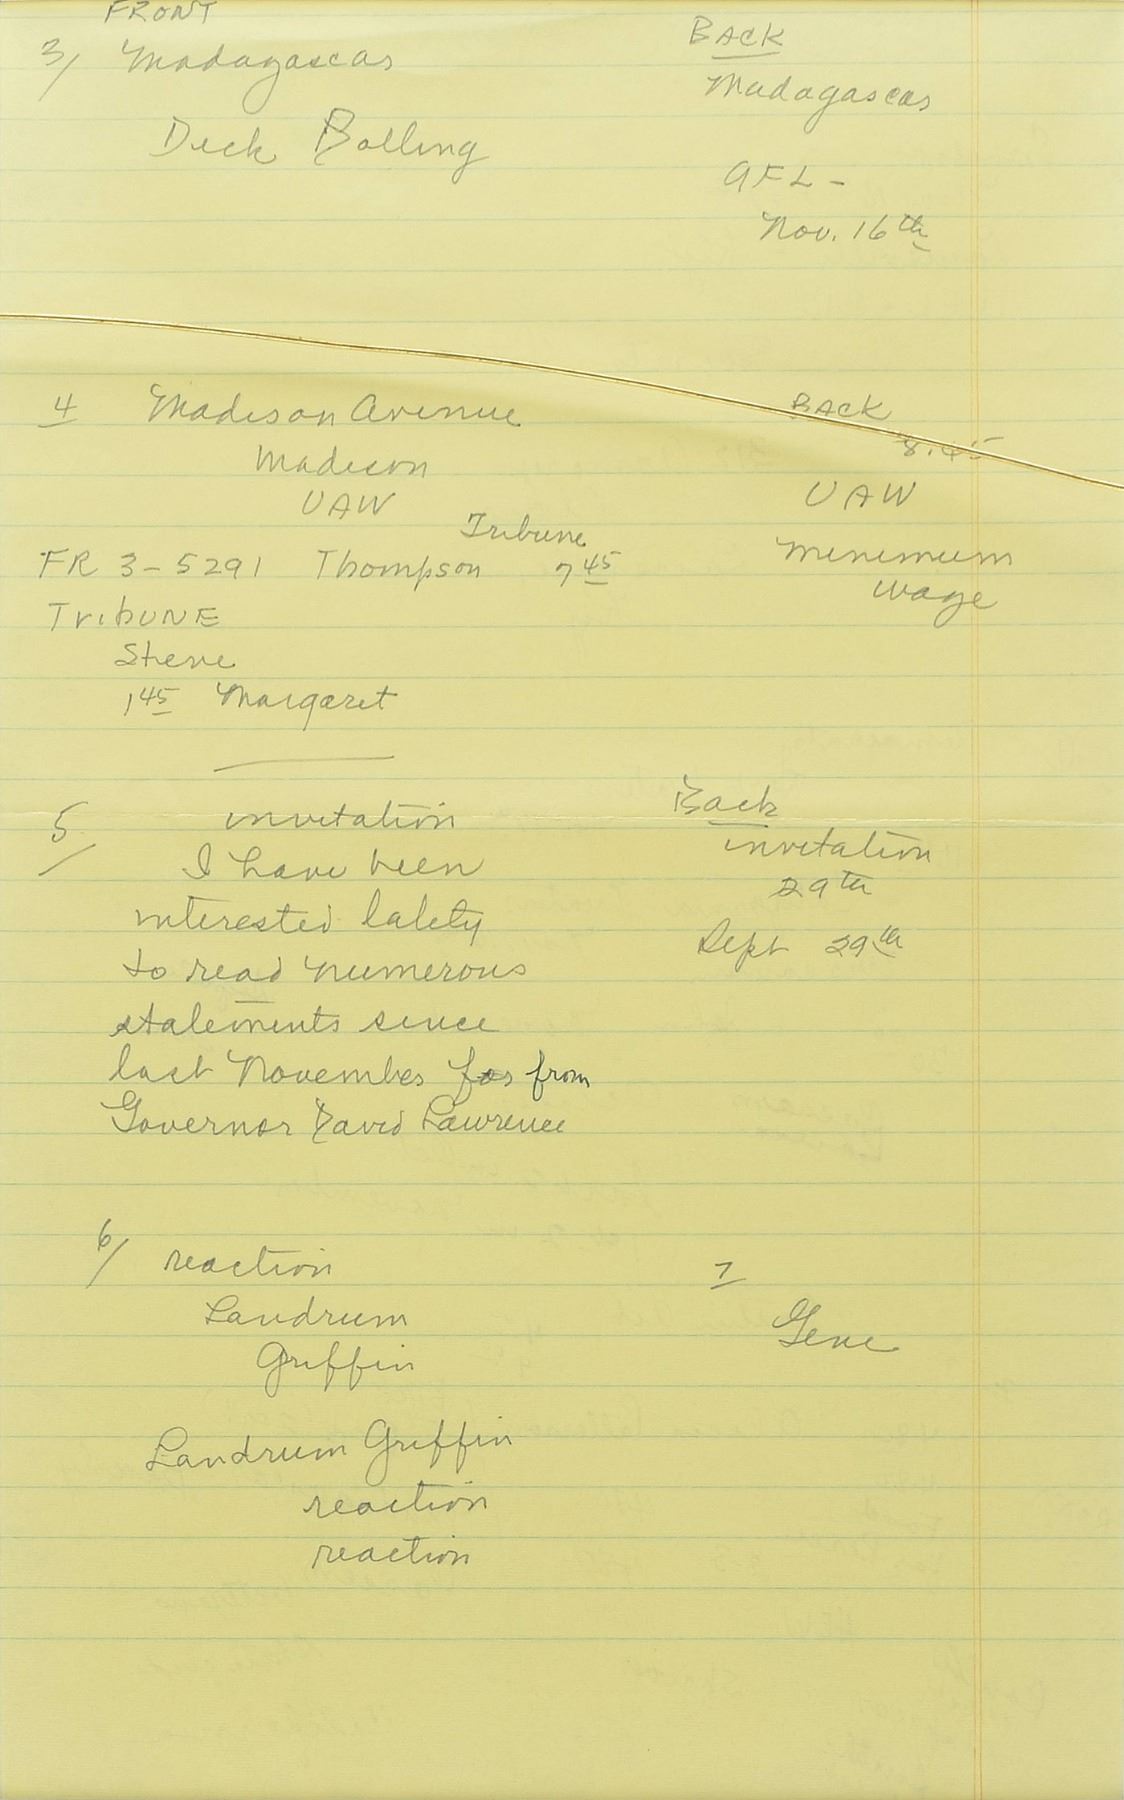 FRONT
3/ Madagascar
Dick Bolling
BACK
Madagascar
AFL -
Nov. 16th
4 Madison Avenue
Madison
UAW
Tribune
FR 3-5291 Thompson 7 45
TribUNE
Steve
1 45 Margaret
BACK
8.45
UAW
minimum
wage
5/ invitation
I have been
interested lately
to read numerous
statements since
last November for from
Governor David Lawrence
Back
invitation
29th
Sept 29th
6/ reaction
Landrum
Griffin
Landrum Griffin
reaction
reaction
7
Gene